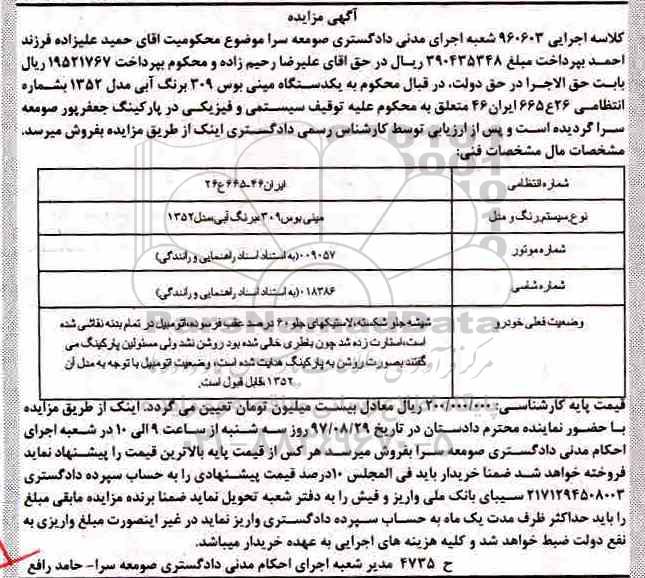 آگهی مزایده
کلاسه اجرایی ۹۶۰۶۰۳ شعبه اجرای مدنی دادگستری صومعه سرا موضوع محکومیت اقای حمید علیزاده فرزند
احمد بپرداخت مبلغ ۳۹۰۴۳۵۳۴۸ ریال در حق اقای علیرضا رحیم زاده و محکوم بپرداخت ۱۹۵۲۱۷۶۷ ریال
بابت حق الاجرا در حق دولت، در قبال محکوم به یکدستگاه مینی بوس ۳۰۹ برنگ آبی مدل ۱۳۵۲ بشماره
انتظامی ۲۶ع۶۶۵ ایران۴۶ متعلق به محکوم علیه توقیف سیستمی و فیزیکی در پارکینگ جعفرپور صومعه
سرا گردیده است و پس از ارزیابی توسط کارشناس رسمی دادگستری اینک از طریق مزایده بفروش میرسد.
مشخصات مال مشخصات فنی:
شماره انتظامی ایران۴۶-۶۶۵ع۲۶
نوع,سیستم,رنگ و مدل مینی بوس۳۰۹,برنگ آبی,مدل۱۳۵۲
شماره موتور ۰۰۹۰۵۷(به استناد اسناد راهنمایی و رانندگی)
شماره شاسی ۰۱۸۳۸۶(به استناد اسناد راهنمایی و رانندگی)
وضعیت فعلی خودرو شیشه جلو شکسته,لاستیکهای جلو ۶۰ درصد عقب فرسوده,اتومبیل در تمام بدنه نقاشی شده
است,استارت زده شد چون باطری خالی شده بود روشن نشد ولی مسئولین پارکینگ می
گفتند بصورت روشن به پارکینگ هدایت شده است, وضعیت اتومبیل با توجه به مدل آن
۱۳۵۲,قابل قبول است.
قیمت پایه کارشناسی: ۲۰۰/۰۰۰/۰۰۰ ریال معادل بیست میلیون تومان تعیین می گردد. اینک از طریق مزایده
با حضور نماینده محترم دادستان در تاریخ ۹۷/۰۸/۲۹ روز سه شنبه از ساعت ۹ الی ۱۰ در شعبه اجرای
احکام مدنی دادگستری صومعه سرا بفروش میرسد هر کس از قیمت پایه بالاترین قیمت را پیشنهاد نماید
فروخته خواهد شد ضمنا خریدار باید فی المجلس ۱۰درصد قیمت پیشنهادی را به حساب سپرده دادگستری
۲۱۷۱۲۹۴۵۰۸۰۰۳ سیبای بانک ملی واریز و فیش را به دفتر شعبه تحویل نماید ضمنا برنده مزایده مابقی مبلغ
را باید حداکثر ظرف مدت یک ماه به حساب سپرده دادگستری واریز نماید در غیر اینصورت مبلغ واریزی به
نفع دولت ضبط خواهد شد و کلیه هزینه های اجرایی به عهده خریدار میباشد.
ح ۴۷۳۵ مدیر شعبه اجرای احکام مدنی دادگستری صومعه سرا- حامد رافع